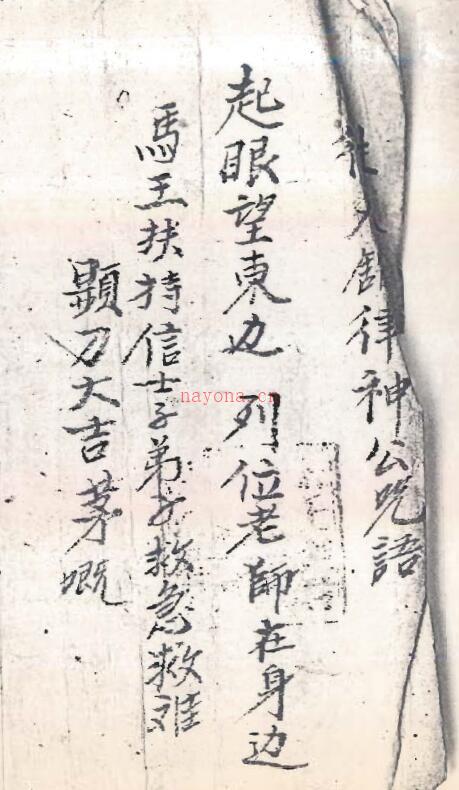 律神公咒語
起眼望東边 列位老師在身边
馬王扶持信士子弟子救急救难
顯刀大吉茅嘅
nayona.cn